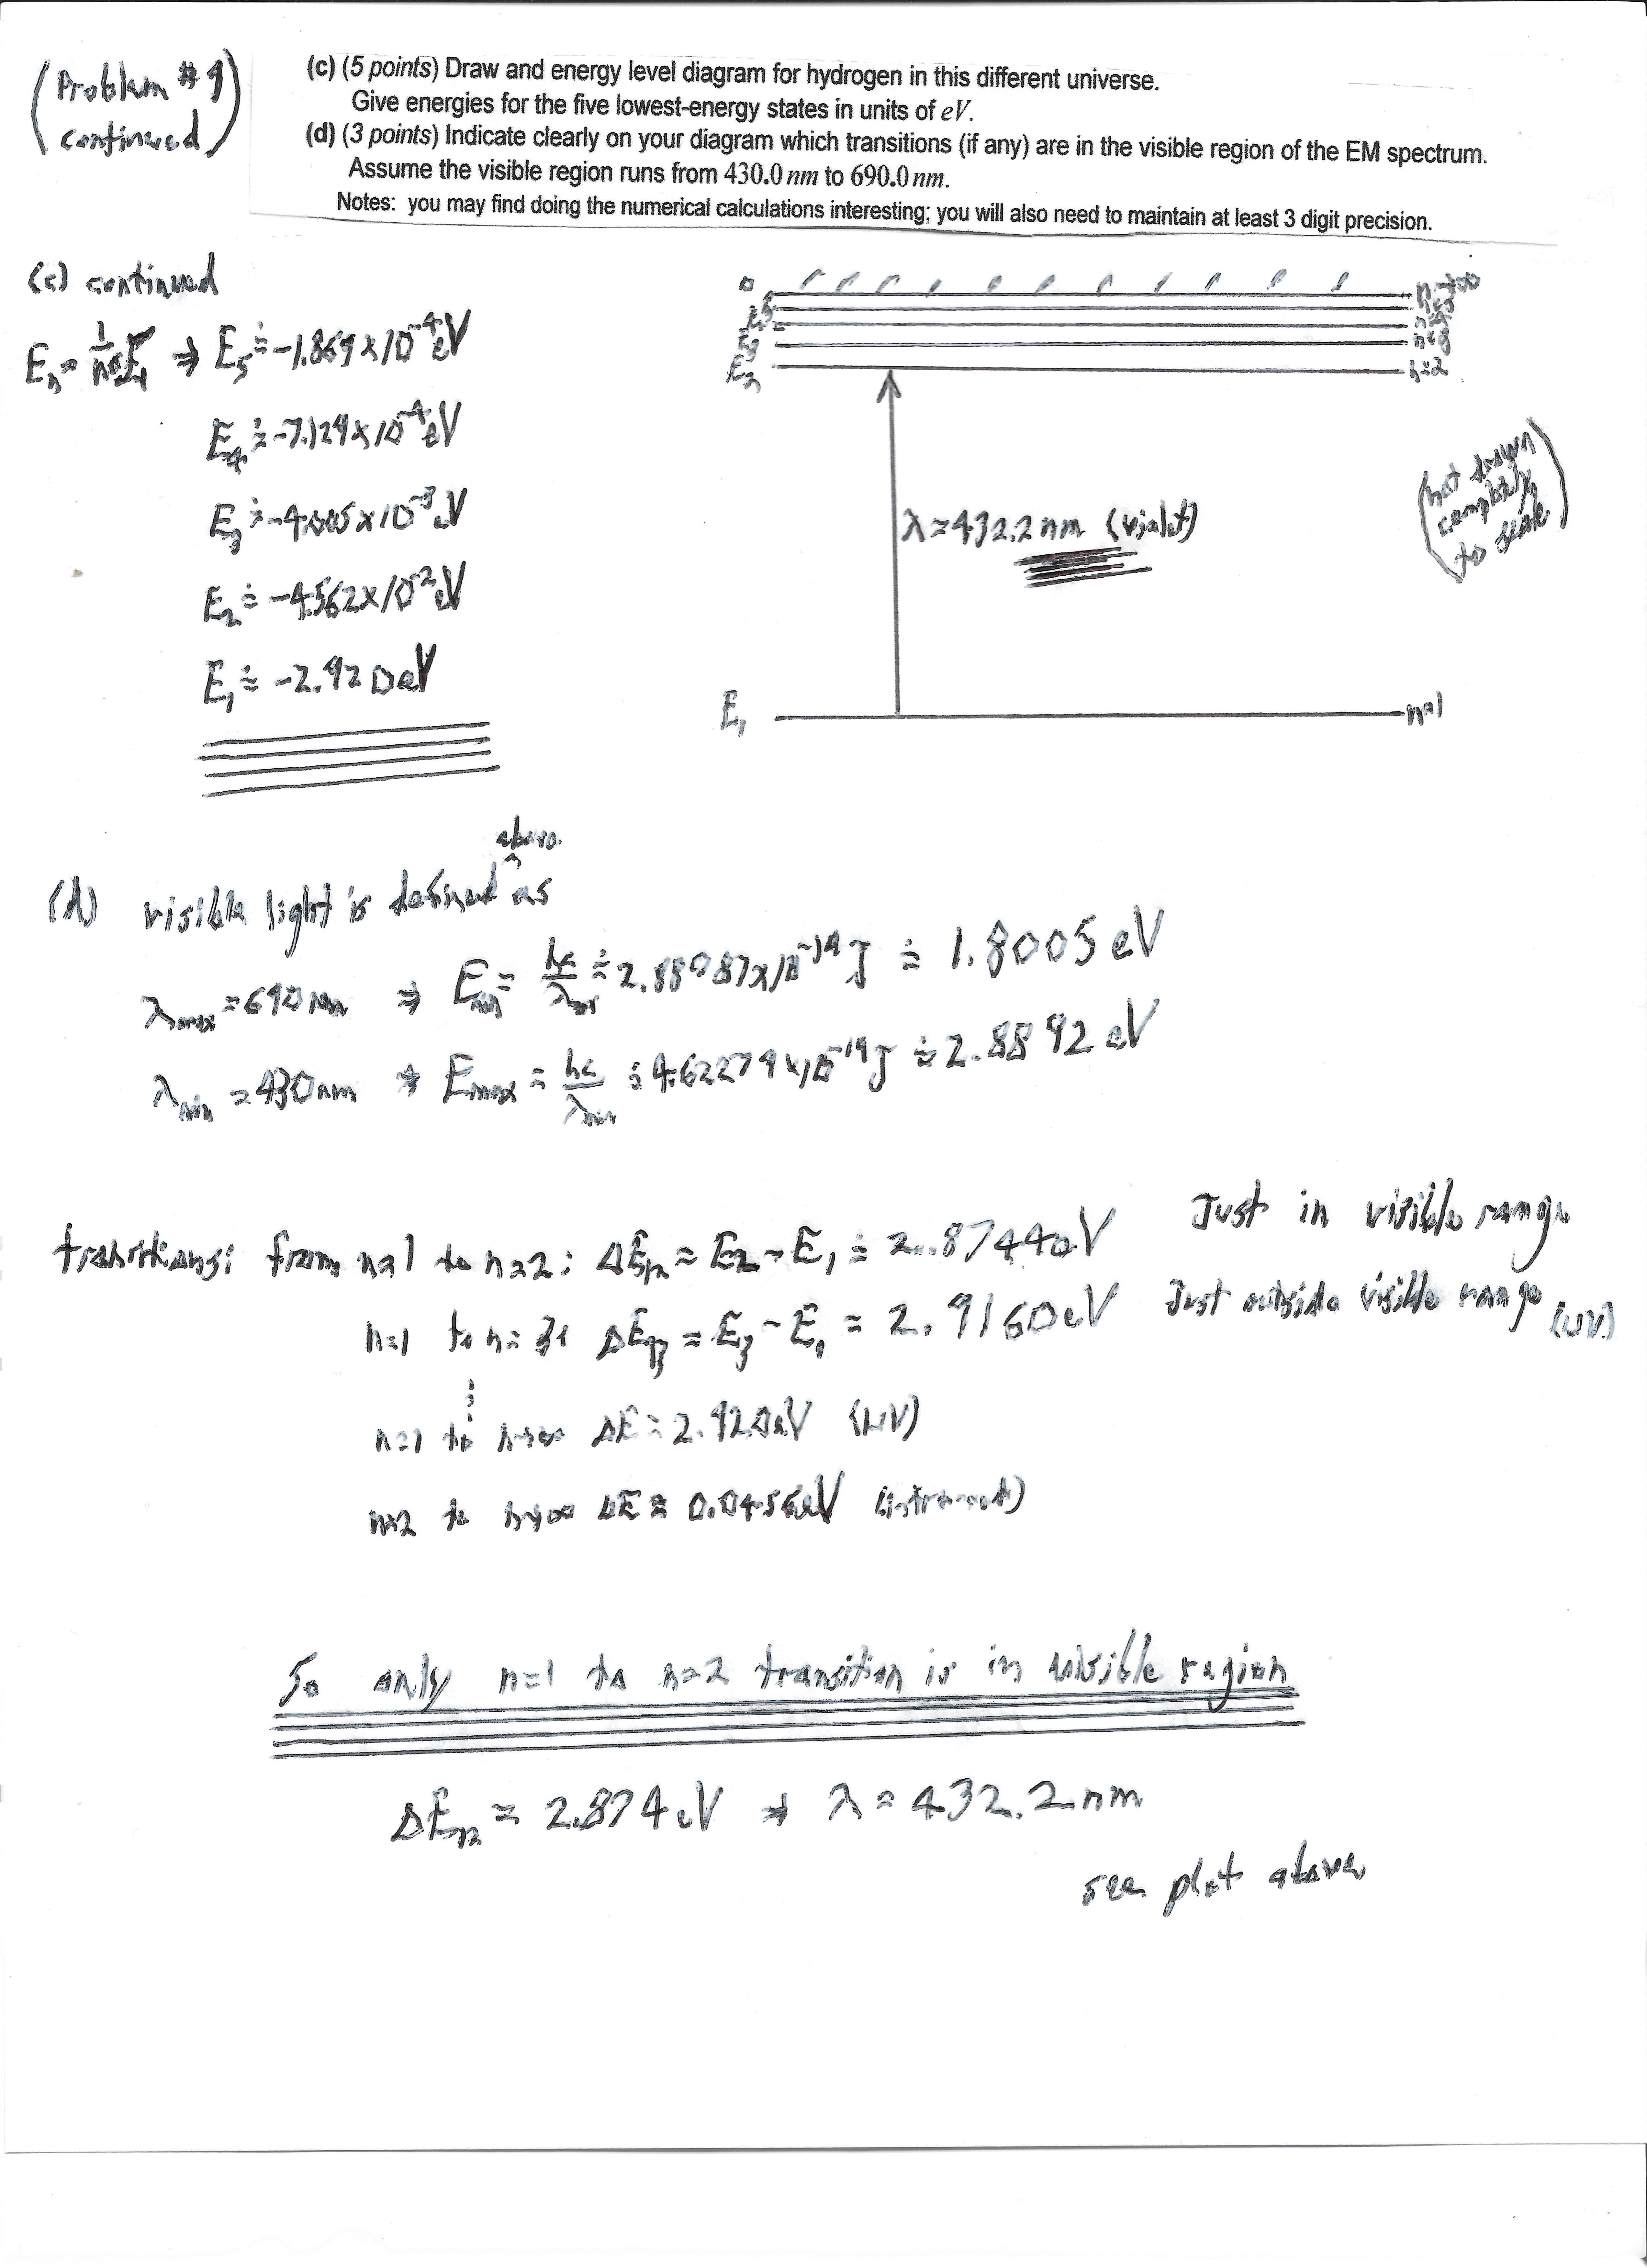 (Problem #9 continued)
(c) (5 points) Draw and energy level diagram for hydrogen in this different universe.
Give energies for the five lowest-energy states in units of eV.
(d) (3 points) Indicate clearly on your diagram which transitions (if any) are in the visible region of the EM spectrum.
Assume the visible region runs from 430.0 nm to 690.0 nm.
Notes: you may find doing the numerical calculations interesting; you will also need to maintain at least 3 digit precision.
(c) continued
Eₙ = 1/n⁶ E₁ ⇒ E₅ ≐ -1.869×10⁻⁴ eV
E₄ ≐ -7.129×10⁻⁴ eV
E₃ ≐ -4.005×10⁻³ eV
E₂ ≐ -4.562×10⁻² eV
E₁ ≐ -2.920 eV
0
n→∞
E₃
n=3
E₂
n=2
λ=432.2 nm (violet)
(not drawn completely to scale)
E₁
n=1
(d) visible light is defined above as
λmax = 690 nm ⇒ Emin = hc/λmax ≐ 2.88087×10⁻¹⁹ J ≐ 1.8005 eV
λmin = 430 nm ⇒ Emax = hc/λmin ≐ 4.62279×10⁻¹⁹ J ≐ 2.8892 eV
transitions: from n=1 to n=2: ΔE₁₂ = E₂ - E₁ ≐ 2.8744 eV Just in visible range
n=1 to n=3: ΔE₁₃ = E₃ - E₁ = 2.9160 eV Just outside visible range (UV)
⋮
n=1 to n→∞ ΔE = 2.920 eV (UV)
n=2 to n→∞ ΔE = 0.0456 eV (infrared)
So only n=1 to n=2 transition is in visible region
ΔE₁₂ = 2.874 eV ⇒ λ = 432.2 nm
see plot above